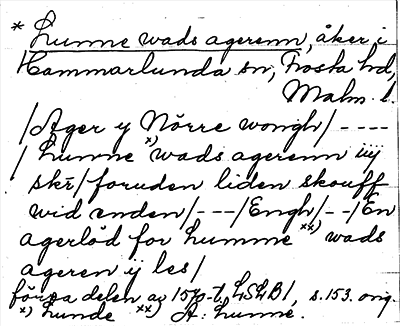 * Lunne wads agerenn, åker i
Hammarlunda sn, Frosta hd,
Malm. l.
/Ager y Nörre wongh/ - - - -
/ Lunne x) wads agerenn iiij
skr̄/ foruden liden skouff
wid enden/ - - -/Engh/ - - /En
agerlöd for Lunne xx) wads
ageren ij les/
första delen av 1570-t. LSLB1, s. 153. orig.
x) Lunde xx) A: Lunne.